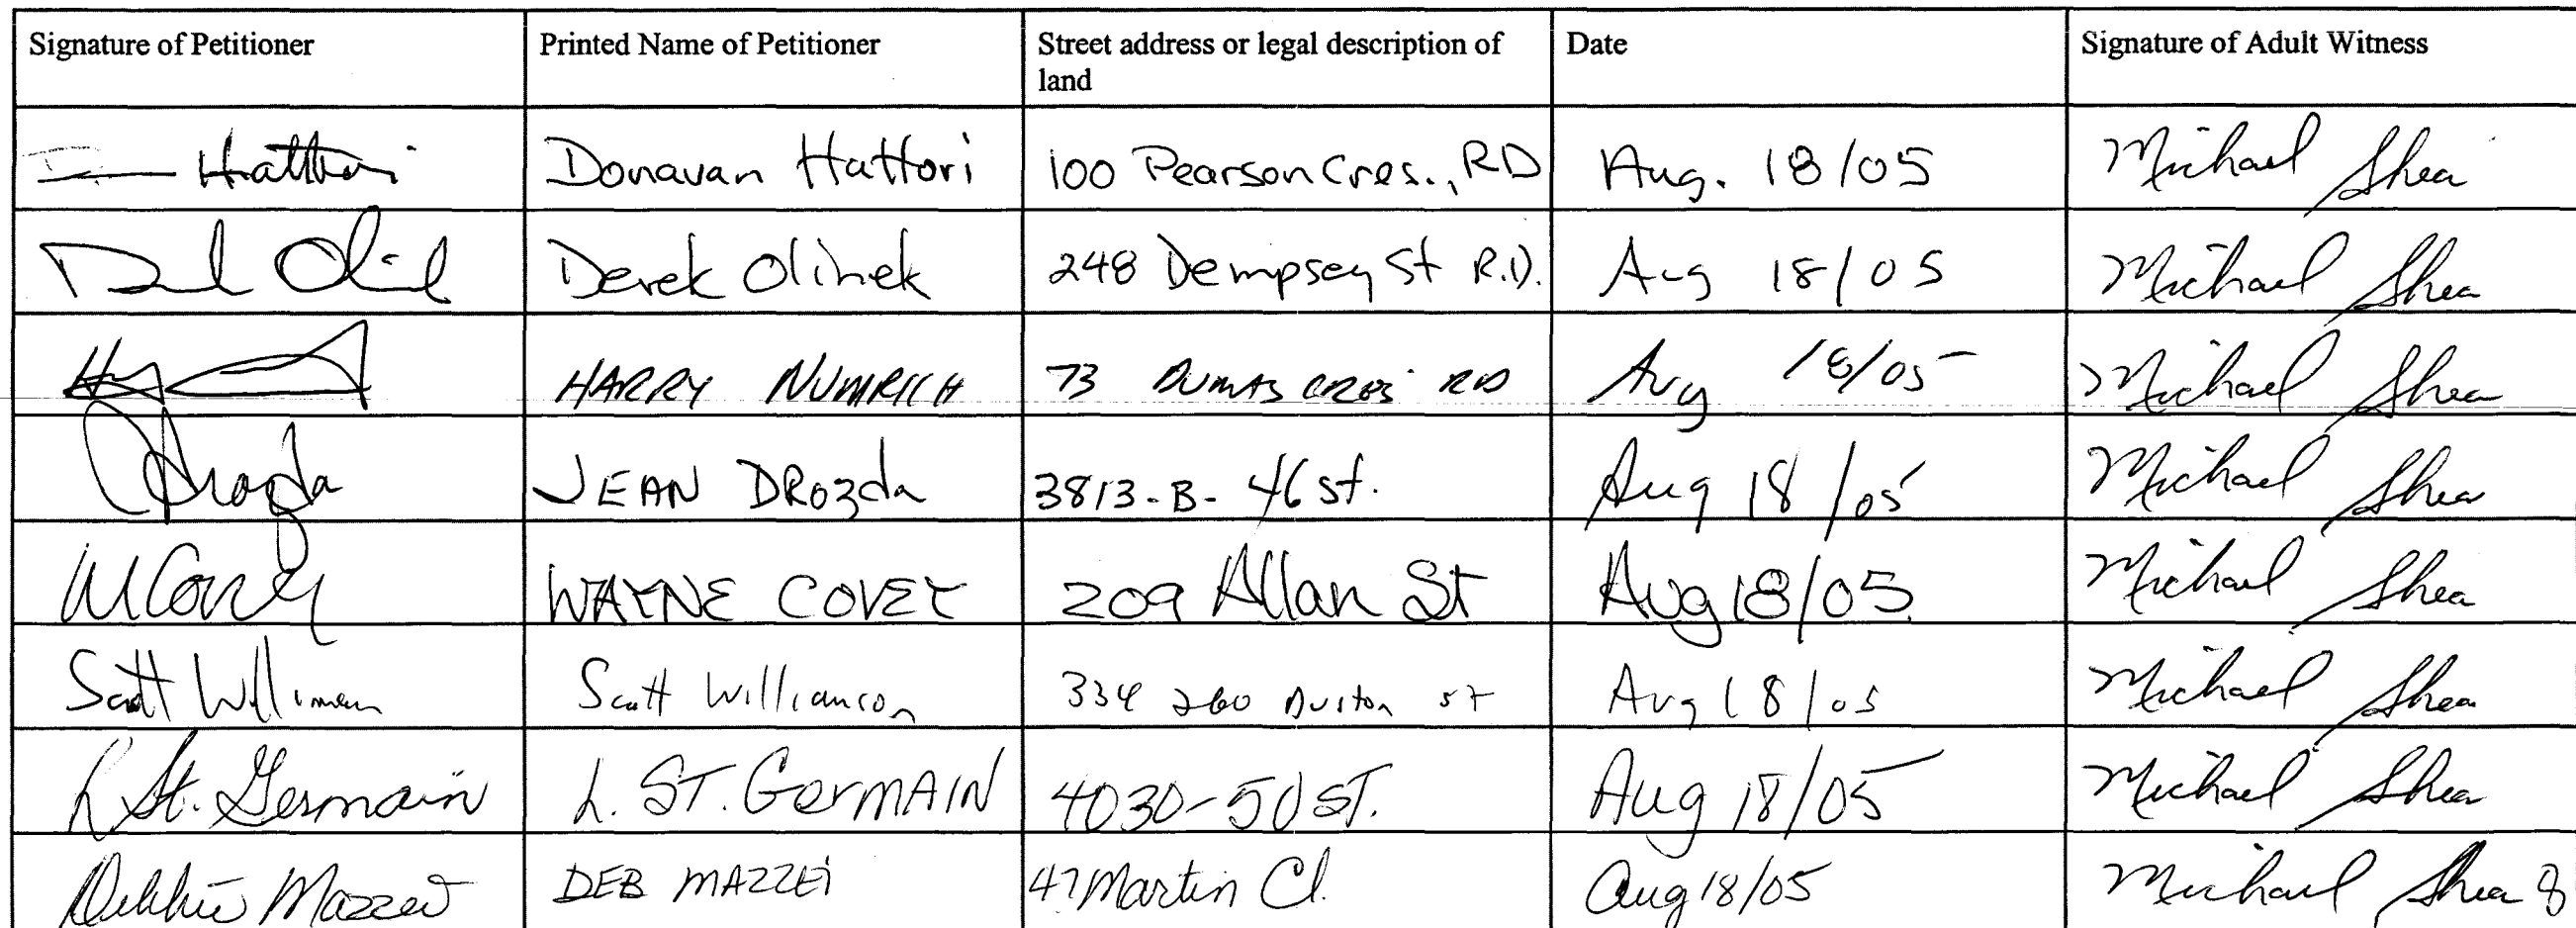 Signature of Petitioner Printed Name of Petitioner Street address or legal description of land Date Signature of Adult Witness
Hattori Donavan Hattori 100 Pearson Cres., RD Aug. 18/05 Michael Shea
Derek Olinek 248 Dempsey St R.D. Aug 18/05 Michael Shea
HARRY NUMRICH 73 DUMAS CRES RD Aug 18/05 Michael Shea
Drozda JEAN DROzda 3813-B- 46 st. Aug 18/05 Michael Shea
W Covey WAYNE COVEY 209 Allan St Aug 18/05 Michael Shea
Scott Williamson Scott Williamson 334 260 st Aug 18/05 Michael Shea
L St. Germain L. ST. GerMAIN 4030-50 ST. Aug 18/05 Michael Shea
Debbie Mazzei DEB MAZZEI 47 Martin Cl. Aug 18/05 Michael Shea 8